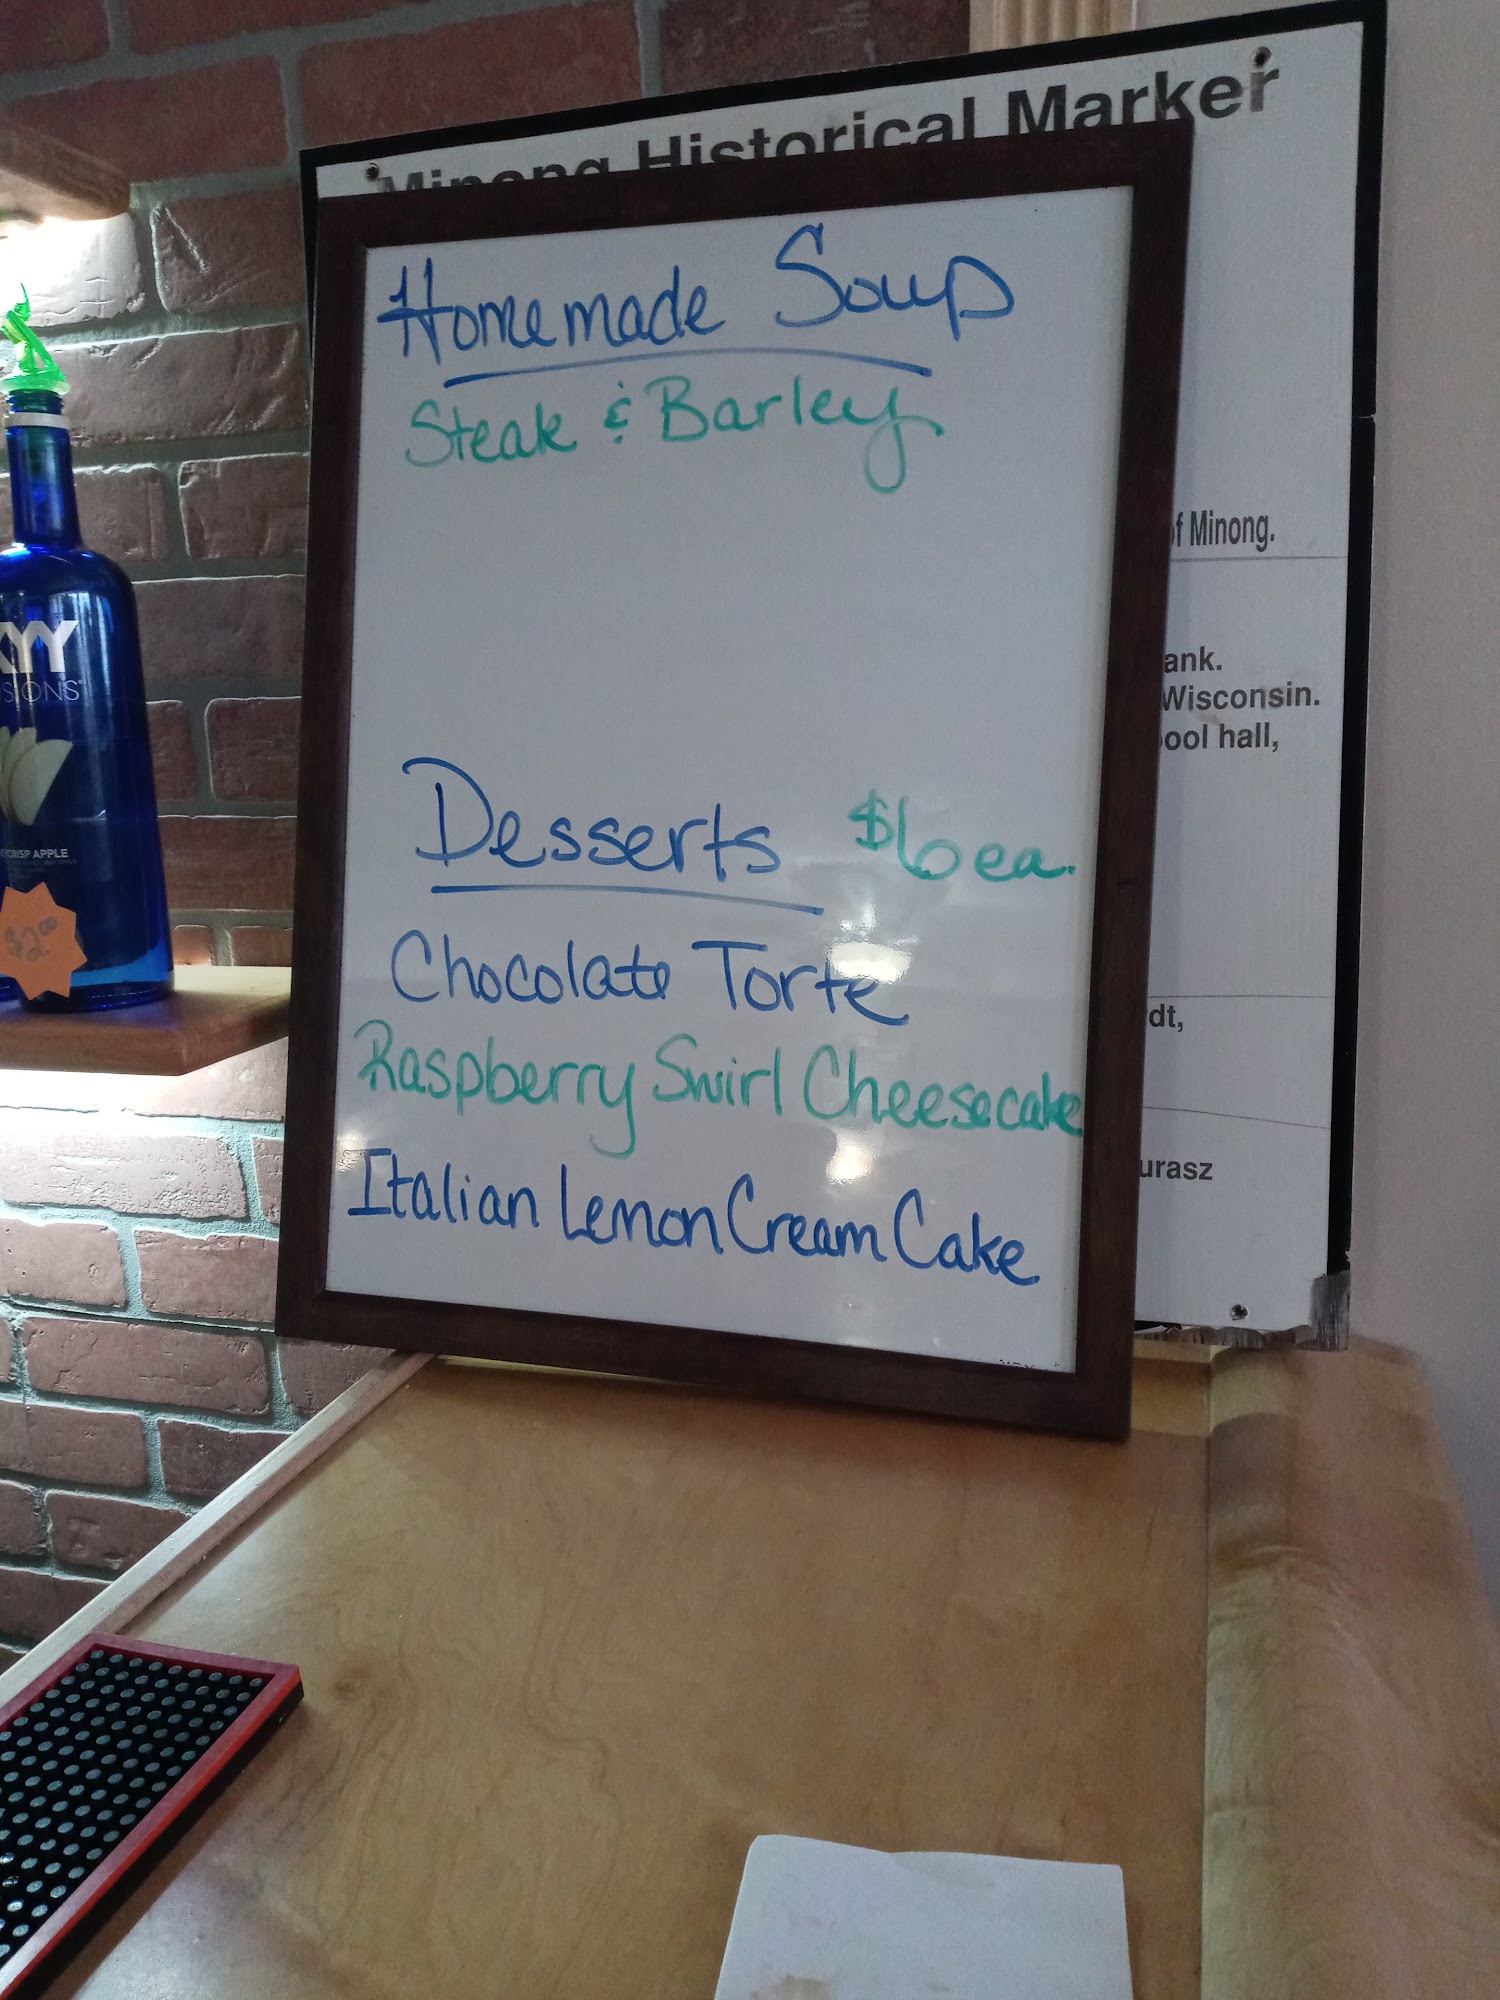 Minong Historical Marker
Homemade Soup
Steak & Barley
of Minong.
ank.
Wisconsin.
ool hall,
Desserts $6 ea.
Chocolate Torte
Raspberry Swirl Cheesecake
Italian Lemon Cream Cake
dt,
urasz
KYY
SIONS
CRISP APPLE
$2.00